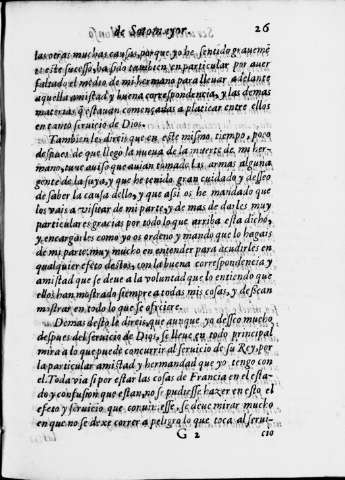 de Sotomayor. 26
las otras muchas causas, porque yo he sentido grauemẽ
te este sucesso, ha sido tambien en particular por auer
faltado el medio de mi hermano para lleuar adelante
aquella amistad y buena correspondencia, y las demas
materias, q̃ estauan començadas a platicar entre ellos
en tanto seruicio de Dios.
Tambien les direis que en este mismo tiempo, poco
despues de que llegò la nueua de la muerte de mi her-
mano, tuue auiso que auian tomado las armas alguna
gente de la suya, y que he tenido gran cuidado y desseo
de saber la causa dello, y que assi os he mandado que
los vais a visitar de mi parte, y de mas de darles muy
particulares gracias por todo lo que arriba esta dicho,
y encargarles como yo os ordeno y mando que lo hagais
de mi parte muy mucho en entender para acudirles en
qualquier efeto destos, con la buena correspondencia y
amistad que se deue a la voluntad que lo entiendo que
ellos han mostrado siempre a todas mis cosas, y dessean
mostrar en todo lo que se ofreciere.
Demas desto le direis, que aunque yo desseo mucho,
despues del seruicio de Dios, se lleue en todo principal
mira a lo que puede concurrir al seruicio de su Rey, por
la particular amistad y hermandad que yo tengo con
el. Toda via si por estar las cosas de Francia en el esta-
do y confusion que estan, no se pudiesse hazer en esto el
efeto y seruicio que conuiniesse, se deue mirar mucho
en que no se dexe correr a peligro lo que toca al serui-
G 2 cio